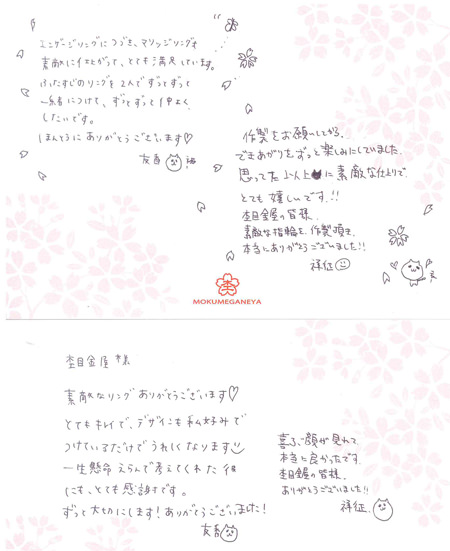 エンゲージリングにつづき、マリッジリングも
素敵に仕上がって、とても満足しています。
ふたつのリングを2人でずっとずっと
一緒につけて、ずっとずっと仲よく
したいです。
ほんとうにありがとうございます♡
友香
作製をお願いしてから、
できあがりをずっと楽しみにしていました。
思ってた以上に素敵な仕上りで
とても嬉しいです。!!
杢目金屋の皆様、
素敵な指輪を、作製頂き、
本当にありがとうございました!!
祥征
MOKUMEGANEYA
杢目金屋 様
素敵なリングありがとうございます♡
とてもキレイで、デザインも私好みで
つけているだけでうれしくなります
一生懸命えらんで考えてくれた彼
にも、とても感謝です。
ずっと大切にします!ありがとうございました!
友香
喜ぶ顔が見れて
本当に良かったです。
杢目金屋の皆様、
ありがとうございました!!
祥征.